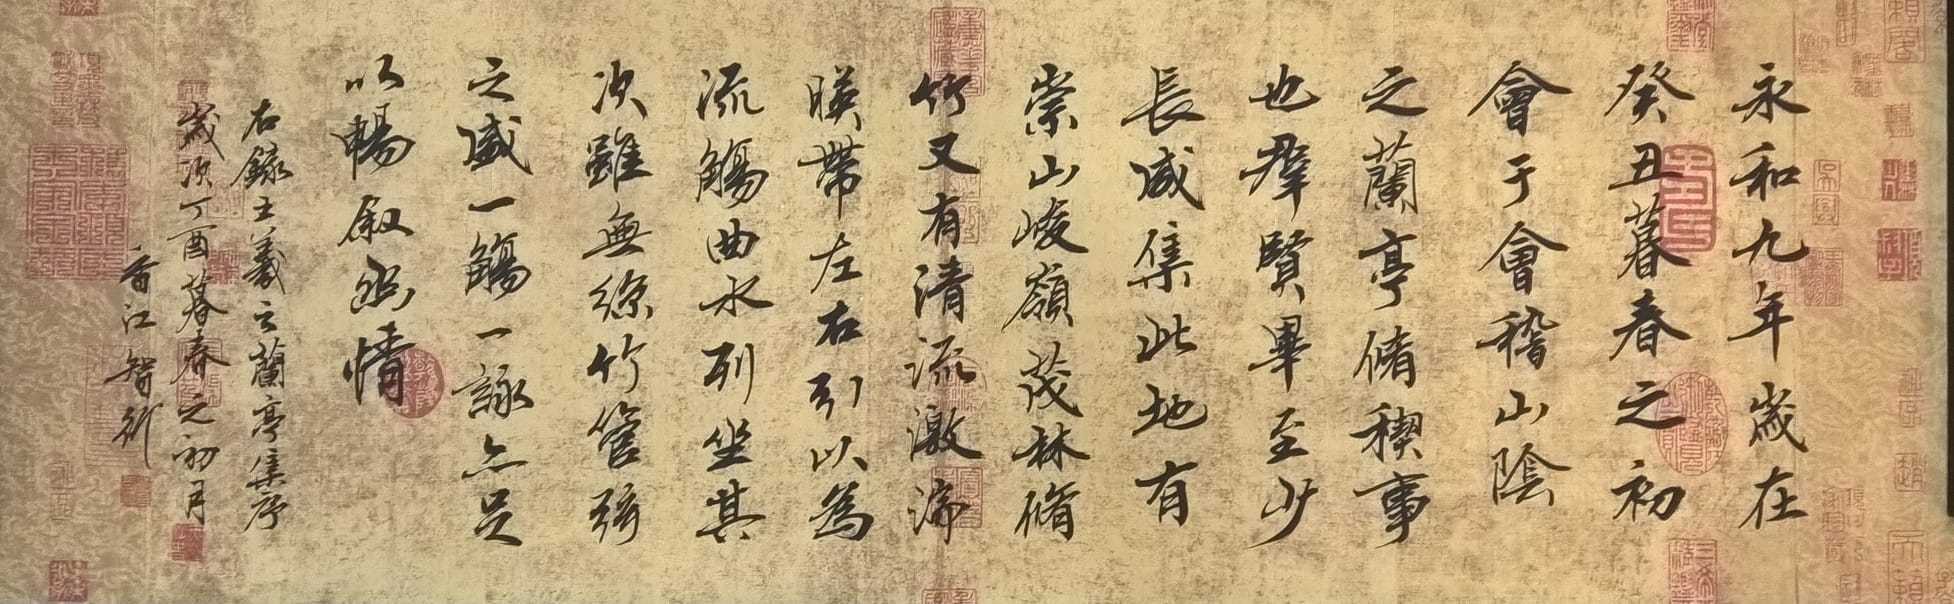 永和九年歲在
癸丑暮春之初
會于會稽山陰
之蘭亭脩稧事
也群賢畢至少
長咸集此地有
崇山峻嶺茂林脩
竹又有清流激湍
暎帶左右引以為
流觴曲水列坐其
次雖無絲竹管弦
之盛一觴一詠亦足
以暢叙幽情
右錄王羲之蘭亭集序
歲次丁酉暮春之初月
香江智